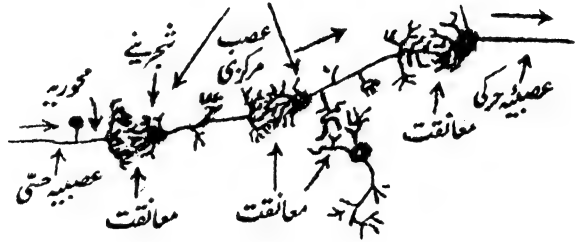 عصب
مرکزی
شجرینے
محوریہ
عصبیہ حسّی
معانقت
معانقت
معانقت
عصبیہ حرکی